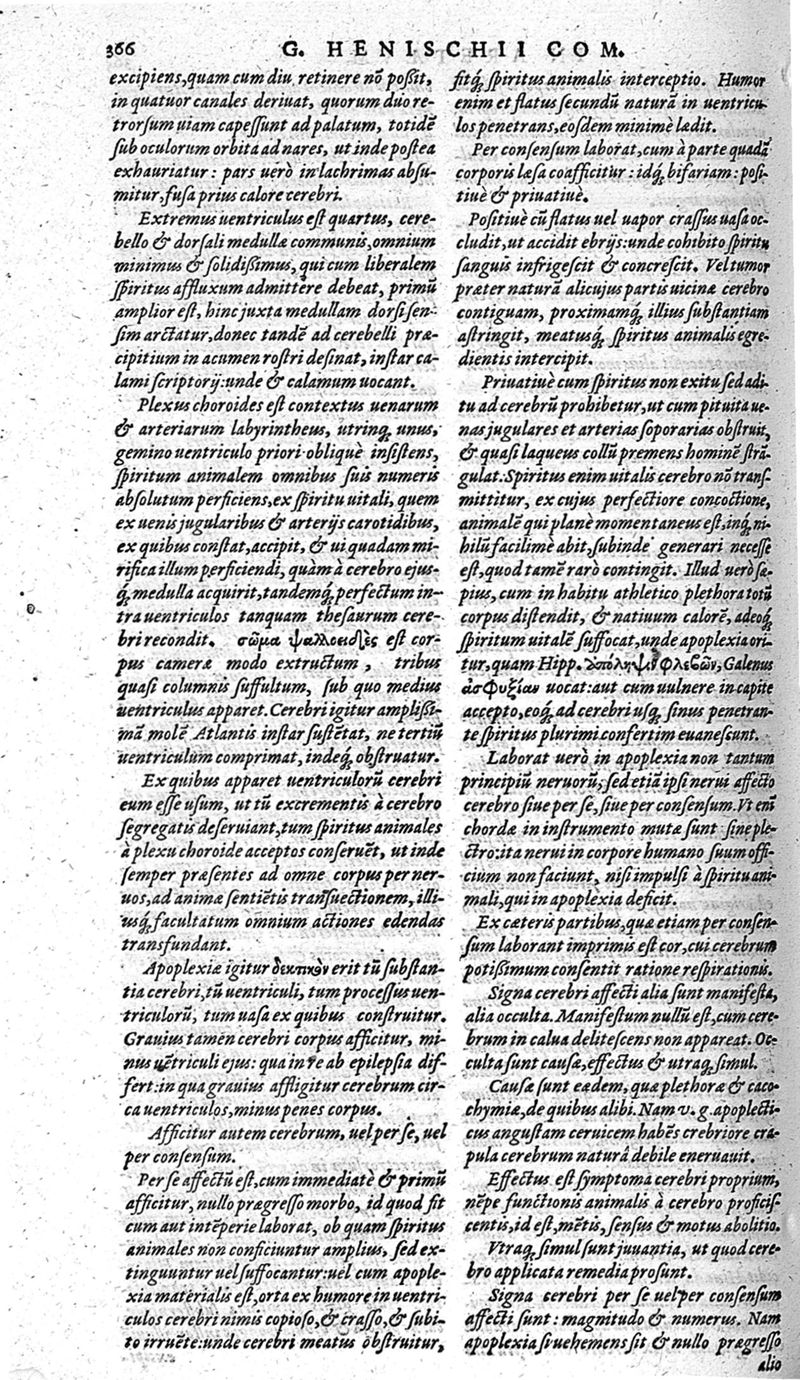 366
G. HENISCHII COM.
excipiens, quam cum diu retinere nō poßit,
in quatuor canales deriuat, quorum duo re-
trorsum uiam capessunt ad palatum, totidē
sub oculorum orbita ad nares, ut inde postea
exhauriatur: pars uerò in lachrimas absu-
mitur, fusa prius calore cerebri.
Extremus uentriculus est quartus, cere-
bello & dorsali medullæ communis, omnium
minimus & solidißimus, qui cum liberalem
spiritus affluxum admittere debeat, primū
amplior est, hinc juxta medullam dorsi sen-
sim arctatur, donec tandē ad cerebelli præ-
cipitium in acumen rostri desinat, instar ca-
lami scriptorij: unde & calamum uocant.
Plexus choroides est contextus uenarum
& arteriarum labyrintheus, utrinq; unus,
gemino uentriculo priori obliquè insistens,
spiritum animalem omnibus suis numeris
absolutum perficiens, ex spiritu uitali, quem
ex uenis jugularibus & arterijs carotidibus,
ex quibus constat, accipit, & ui quadam mi-
rifica illum perficiendi, quàm à cerebro ejus-
q; medulla acquirit, tandemq; perfectum in-
tra uentriculos tanquam thesaurum cere-
bri recondit. σῶμα ψαλλοειδὲς est cor-
pus cameræ modo extructum, tribus
quasi columnis suffultum, sub quo medius
uentriculus apparet. Cerebri igitur amplißi-
mā molē Atlantis instar sustētat, ne tertiū
uentriculum comprimat, indeq; obstruatur.
Ex quibus apparet uentriculorū cerebri
eum esse usum, ut tū excrementis à cerebro
segregatis deseruiant, tum spiritus animales
à plexu choroide acceptos conseruēt, ut inde
semper præsentes ad omne corpus per ner-
uos, ad animæ sentiētis transuectionem, illi-
usq; facultatum omnium actiones edendas
transfundant.
Apoplexiæ igitur δεκτικὸν erit tū substan-
tia cerebri, tū uentriculi, tum processus uen-
triculorū, tum uasa ex quibus construitur.
Grauius tamen cerebri corpus afficitur, mi-
nus uētriculi ejus: qua in re ab epilepsia dif-
fert: in qua grauius affligitur cerebrum cir-
ca uentriculos, minus penes corpus.
Afficitur autem cerebrum, uel per se, uel
per consensum.
Per se affectū est, cum immediatè & primū
afficitur, nullo prægresso morbo, id quod fit
cum aut intēperie laborat, ob quam spiritus
animales non conficiuntur amplius, sed ex-
tinguuntur uel suffocantur: uel cum apople-
xia materialis est, orta ex humore in uentri-
culos cerebri nimis copioso, & crasso, & subi-
to irruēte: unde cerebri meatus obstruitur,
fitq; spiritus animalis interceptio. Humor
enim et flatus secundū naturā in uentricu-
los penetrans, eosdem minimè lædit.
Per consensum laborat, cum à parte quadā
corporis læsa coafficitur: idq; bifariam: posi-
tiuè & priuatiuè.
Positiuè cū flatus uel uapor crassus uasa oc-
cludit, ut accidit ebrijs: unde cohibito spiritu
sanguis infrigescit & concrescit. Vel tumor
præter naturā alicujus partis uicinæ cerebro
contiguam, proximamq; illius substantiam
astringit, meatusq; spiritus animalis egre-
dientis intercipit.
Priuatiuè cum spiritus non exitu sed adi-
tu ad cerebrū prohibetur, ut cum pituita ue-
nas jugulares et arterias soporarias obstruit,
& quasi laqueus collū premens hominē strā-
gulat. Spiritus enim uitalis cerebro nō trans-
mittitur, ex cujus perfectiore concoctione,
animalē qui planè momentaneus est, inq; ni-
hilū facilimè abit, subinde generari necesse
est, quod tamē rarò contingit. Illud uerò sæ-
pius, cum in habitu athletico plethora totū
corpus distendit, & natiuum calorē, adeoq;
spiritum uitalē suffocat, unde apoplexia ori-
tur, quam Hipp. ἀπόληψιν φλεβῶν, Galenus
ἀσφυξίαν uocat: aut cum uulnere in capite
accepto, eoq; ad cerebri usq; sinus penetran-
te spiritus plurimi confertim euanescunt.
Laborat uerò in apoplexia non tantum
principiū neruorū, sed etiā ipsi nerui affecto
cerebro siue per se, siue per consensum. Vt enī
chordæ in instrumento mutæ sunt sine ple-
ctro: ita nerui in corpore humano suum offi-
cium non faciunt, nisi impulsi à spiritu ani-
mali, qui in apoplexia deficit.
Ex cæteris partibus, quæ etiam per consen-
sum laborant imprimis est cor, cui cerebrum
potißimum consentit ratione respirationis.
Signa cerebri affecti alia sunt manifesta,
alia occulta. Manifestum nullū est, cum cere-
brum in calua delitescens non appareat. Oc-
culta sunt causæ, effectus & utraq; simul.
Causæ sunt eædem, quæ plethoræ & caco-
chymiæ, de quibus alibi. Nam v. g. apoplecti-
cus angustam ceruicem habēs crebriore cra-
pula cerebrum naturâ debile eneruauit.
Effectus est symptoma cerebri proprium,
nēpe functionis animalis à cerebro proficis-
centis, id est, mētis, sensus & motus abolitio.
Vtraq; simul sunt juuantia, ut quod cere-
bro applicata remedia prosunt.
Signa cerebri per se uel per consensum
affecti sunt: magnitudo & numerus. Nam
apoplexia si uehemens sit & nullo prægresso
alio